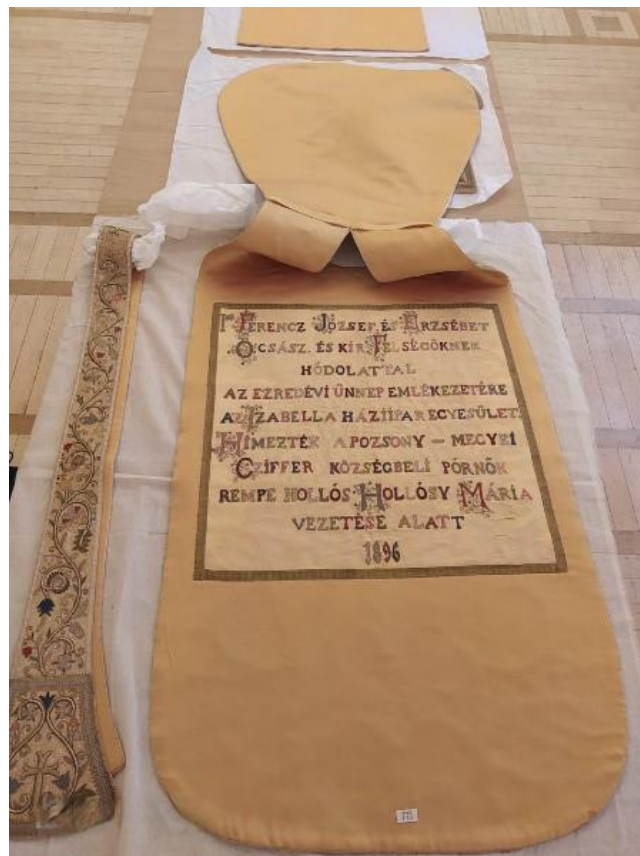 I. FERENCZ JÓZSEF ÉS ERZSÉBET
Ő CSÁSZ. ÉS KIR FELSÉGÖKNEK
HÓDOLATTAL
AZ EZREDÉVI ÜNNEP EMLÉKEZETÉRE
AZ IZABELLA HÁZIIPAR EGYESÜLET.
HÍMEZTÉK A POZSONY – MEGYEI
CZIFFER KÖZSÉGBELI PÓRNŐK
REMPE HOLLÓS HOLLÓSY MÁRIA
VEZETÉSE ALATT
1896